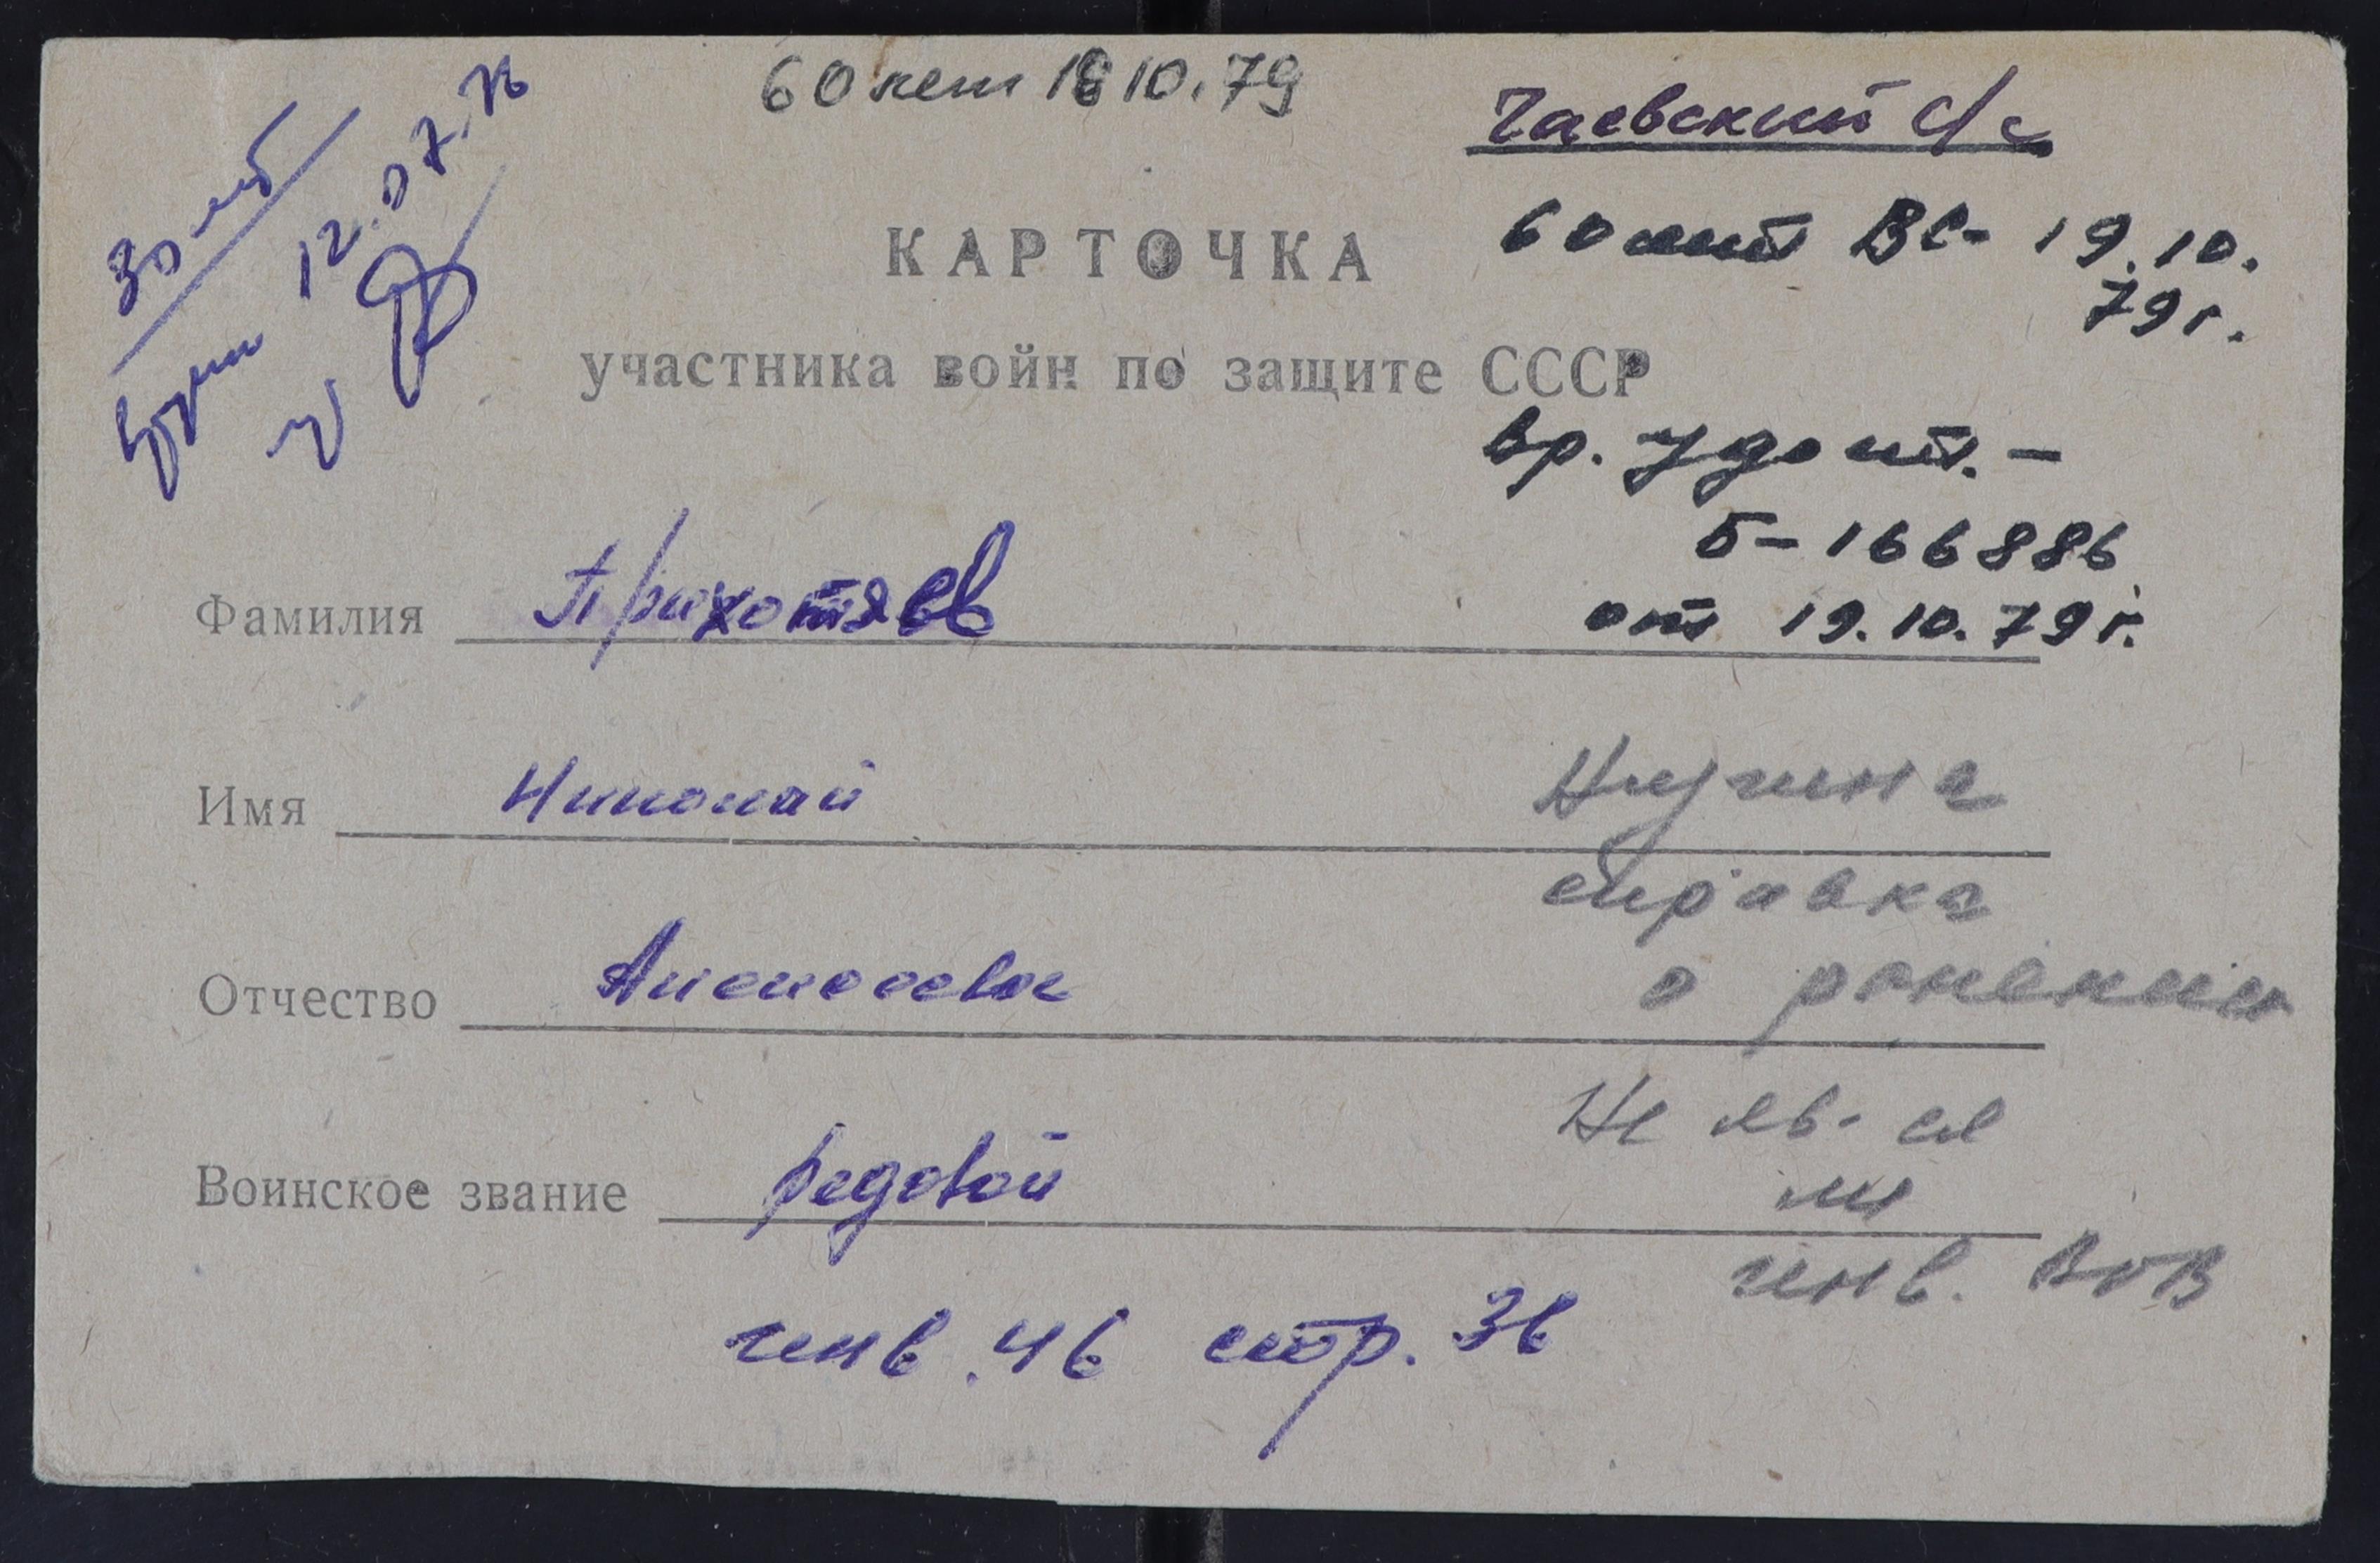 60 лет 18 10.79
Чаевский с/с
30 лет
12.07.76
60 лет ВС - 19.10.
79 г.
КАРТОЧКА
участника войн по защите СССР
вр. удост. -
Б - 166886
от 19.10.79 г.
Фамилия Прихотяев
Имя Николай
Нужна
справка
Отчество Алексеевич
о ранении
Не яв-ся
ли
Воинское звание рядовой
инв. ВОВ
инв. 46 стор. 36